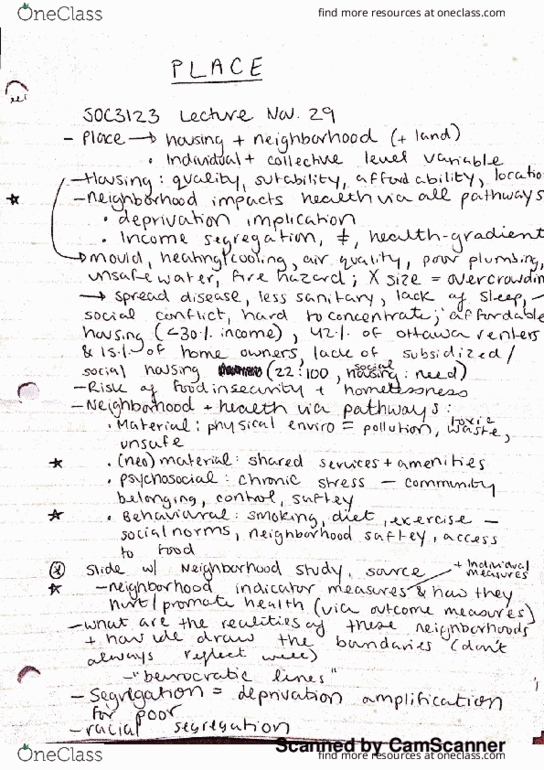 OneClass
find more resources at oneclass.com
PLACE
SOC3123 Lecture Nov. 29
- Place → housing + neighborhood (+ land)
• Individual + collective level variable
- Housing: quality, sutability, affordability, locatio
* - Neighborhood impacts health via all pathways
• deprivation implication
• Income segregation, ≠, health-gradient
→ mould, heating/cooling, air quality, poor plumbing,
unsafe water, fire hazard; X size = overcrowdin
→ spread disease, less sanitary, lack of sleep, -
social conflict, hard to concentrate; affordable
housing (<30% income), 42% of ottawa renters
& 15% of home owners, lack of subsidized/
social housing (22:100, social housing: need)
- Risk of food insecurity + homelessness
- Neighborhood + health via pathways:
• Material: physical enviro = pollution, toxic waste,
unsafe
* • (neo) material: shared services + amenities
• psychosocial: chronic stress - community
belonging, control, saftey
* • Behavioural: smoking, diet, exercise -
social norms, neighborhood saftey, access
to food
Slide w/ Neighborhood study, source + Individual measures
* - neighborhood indicator measures & how they
hurt/promote health (via outcome measures)
- what are the realities of these neighborhoods
+ how we draw the bundaries (don't
always reflect well)
- "beurocratic lines"
- Segregation = deprivation amplification
for poor
- racial segregation
Scanned by CamScanner
OneClass
find more resources at oneclass.com